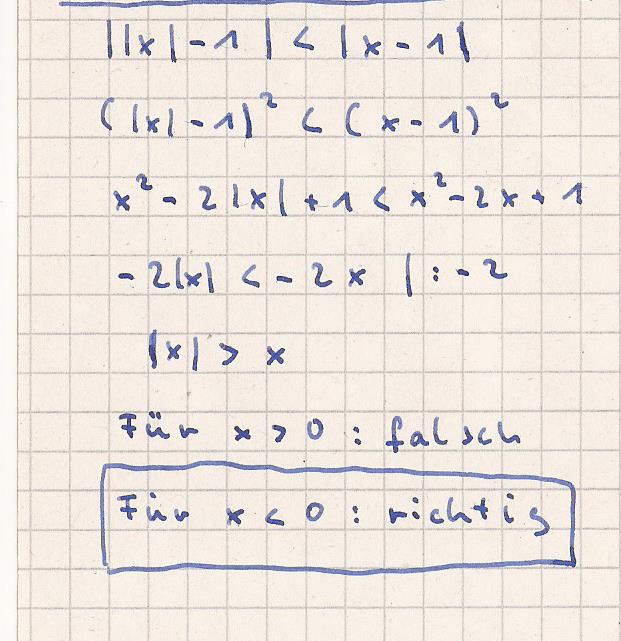 ||x| - 1| < |x - 1|
(|x| - 1)² < (x - 1)²
x² - 2|x| + 1 < x² - 2x + 1
- 2|x| < - 2x | : - 2
|x| > x
Für x > 0 : falsch
Für x < 0 : richtig